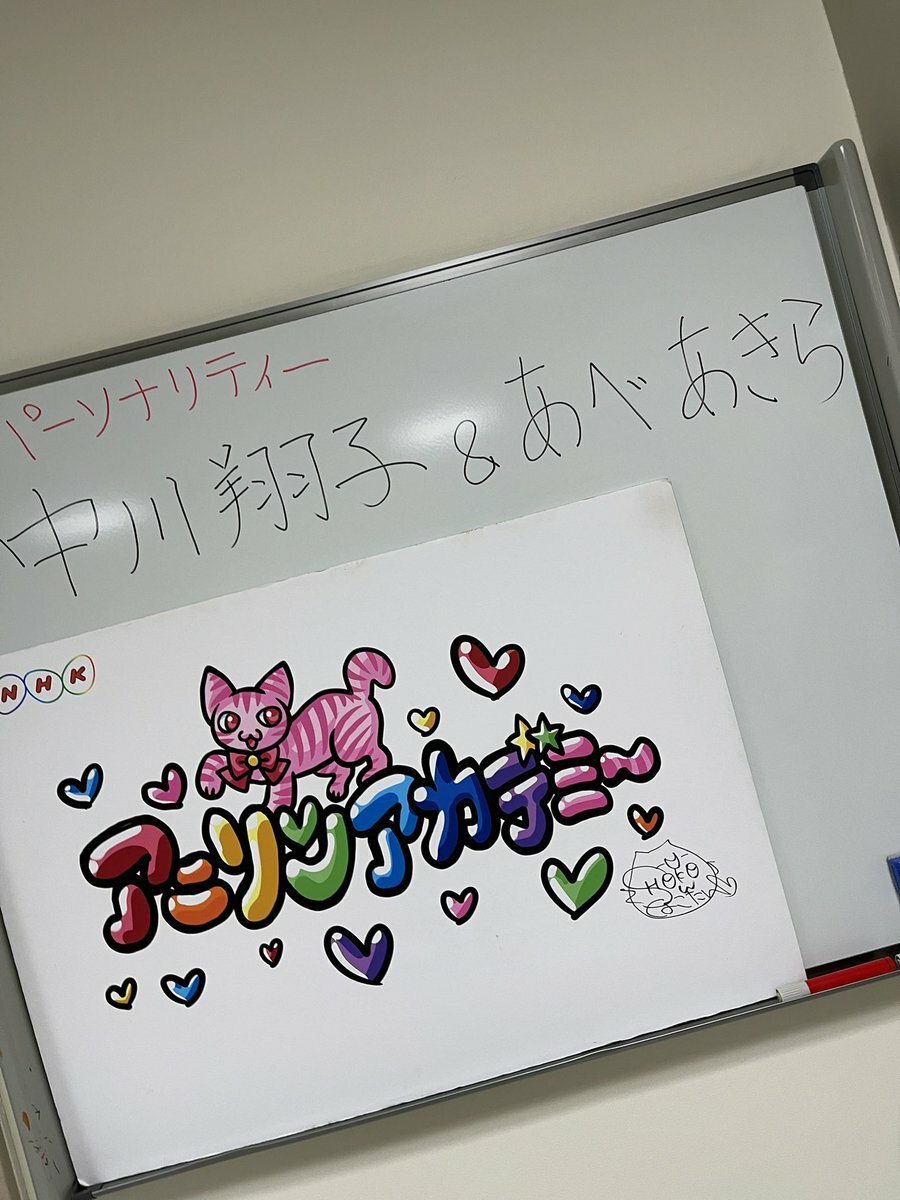 パーソナリティー
中川翔子&あべあきら
NHK
アニソンアカデミー